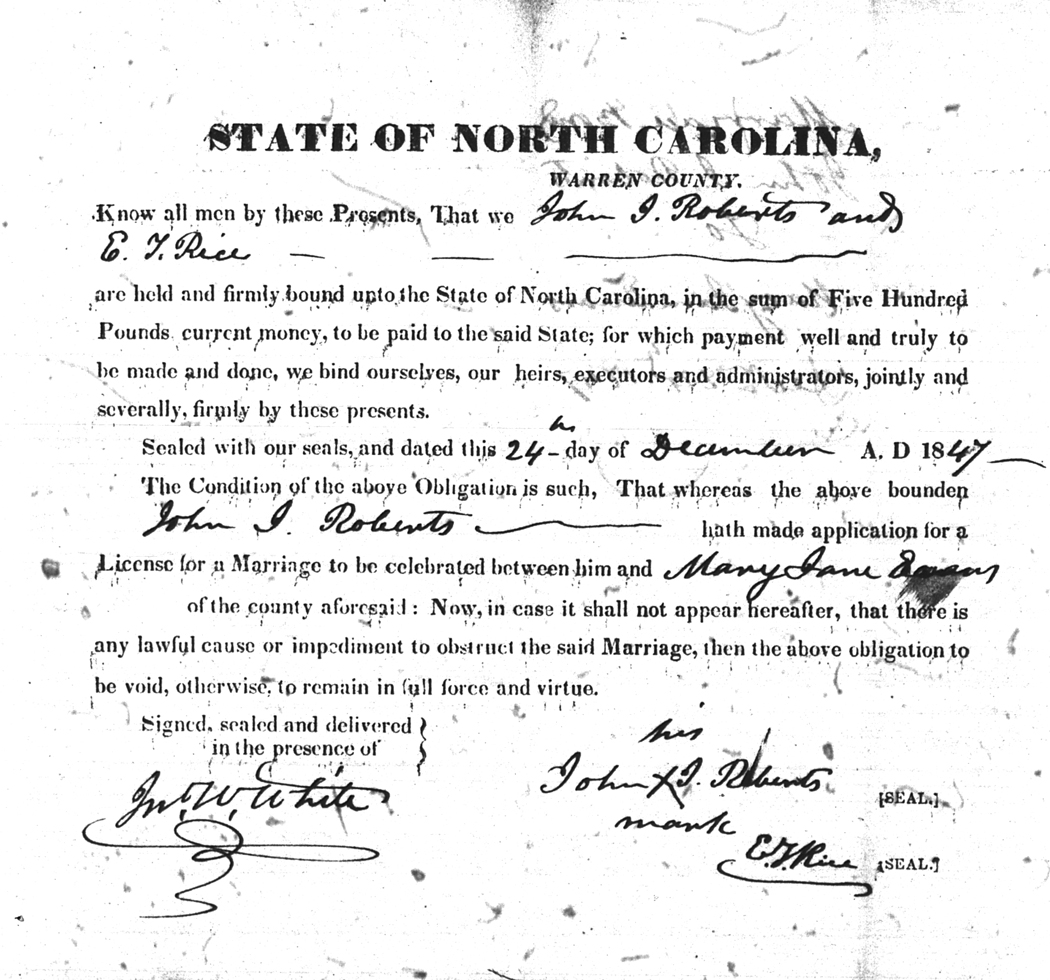 STATE OF NORTH CAROLINA,
WARREN COUNTY.
Know all men by these Presents, That we John I. Roberts and
E. T. Rice
are held and firmly bound unto the State of North Carolina, in the sum of Five Hundred
Pounds current money, to be paid to the said State; for which payment well and truly to
be made and done, we bind ourselves, our heirs, executors and administrators, jointly and
severally, firmly by these presents.
Sealed with our seals, and dated this 24th day of December A. D 1847
The Condition of the above Obligation is such, That whereas the above bounden
John I. Roberts hath made application for a
License for a Marriage to be celebrated between him and Mary Jane Evans
of the county aforesaid: Now, in case it shall not appear hereafter, that there is
any lawful cause or impediment to obstruct the said Marriage, then the above obligation to
be void, otherwise, to remain in full force and virtue.
Signed, sealed and delivered
in the presence of
his
John X I. Roberts [SEAL.]
mark
Jno. W. White
E. T. Rice [SEAL.]